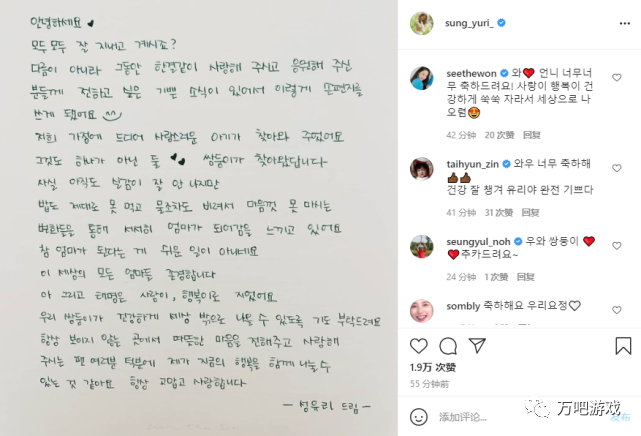 안녕하세요 ♥
모두모두 잘 지내고 계시죠?
다름이 아니라 그동안 한결같이 사랑해 주시고 응원해 주신
분들께 전하고 싶은 기쁜 소식이 있어서 이렇게 손편지를
쓰게 됐어요
저희 가정에 드디어 사랑스러운 아기가 찾아와 주었어요
그것도 하나가 아닌 둘 ♥♥ 쌍둥이가 찾아왔답니다
사실 아직도 실감이 잘 안 나지만
밥도 제대로 못 먹고 물조차도 비려서 마음껏 못 마시는
변화들을 통해 서서히 엄마가 되어감을 느끼고 있어요
참 엄마가 된다는 게 쉬운 일이 아니네요
이 세상의 모든 엄마들 존경합니다
아 그리고 태명은 사랑이, 행복이로 지었어요
우리 쌍둥이가 건강하게 세상 밖으로 나올 수 있도록 기도 부탁드려요
항상 보이지 않는 곳에서 따뜻한 마음을 전해주고 사랑해
주시는 팬 여러분 덕분에 제가 지금의 행복을 함께 나눌 수
있는 것 같아요 항상 고맙고 사랑합니다
- 성유리 드림 -
sung_yuri_
seethewon 와❤️ 언니 너무너
무 축하드려요! 사랑이 행복이 건
강하게 쑥쑥 자라서 세상으로 나
오렴😍
42分钟 20次赞 回复
taihyun_zin 와우 너무 축하해
👍🏾👍🏾
건강 잘 챙겨 유리야 완전 기쁘다
41分钟 31次赞 回复
seungyul_noh 우와 쌍둥이 ❤️
❤️주카드려요~
24分钟 1次赞 回复
sombly 축하해요 우리요정♡
1.9万 次赞
55分钟前
添加评论... 发布
万吧游戏